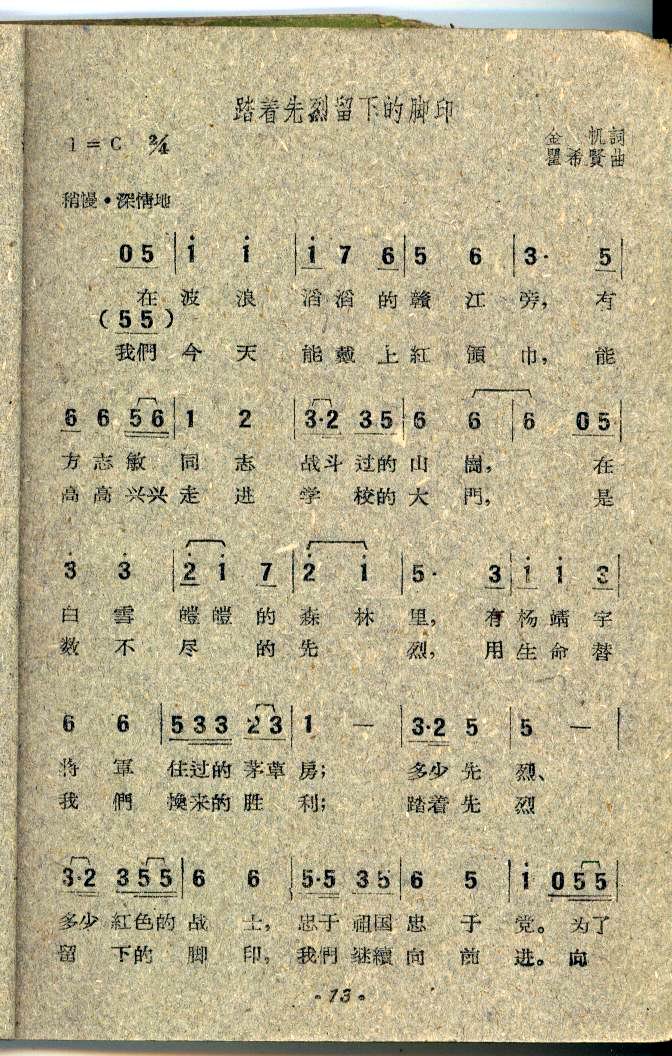 踏着先烈留下的脚印
1=C 2/4
金 帆詞
瞿希賢曲
稍慢·深情地
05 | i i | i 7 6 | 5 6 | 3· 5 |
在波浪滔滔的贛江旁，有
(55)
我們今天能戴上紅領巾，能
6 6 56 | 1 2 | 3·2 35 | 6 6 | 6 05 |
方志敏同志战斗过的山崗，在
高高兴兴走进学校的大門，是
3 3 | 2 1 7 | 2 i | 5· 3 | i i 3 |
白雪皚皚的森林里，有杨靖宇
数不尽的先烈，用生命替
6 6 | 533 23 | 1 — | 3·2 5 | 5 — |
将軍住过的茅草房；多少先烈、
我們換来的胜利；踏着先烈
3·2 355 | 6 6 | 5·5 35 | 6 5 | i 055 |
多少紅色的战士，忠于祖国忠于党。为了
留下的脚印，我們継續向前进。向
·13·